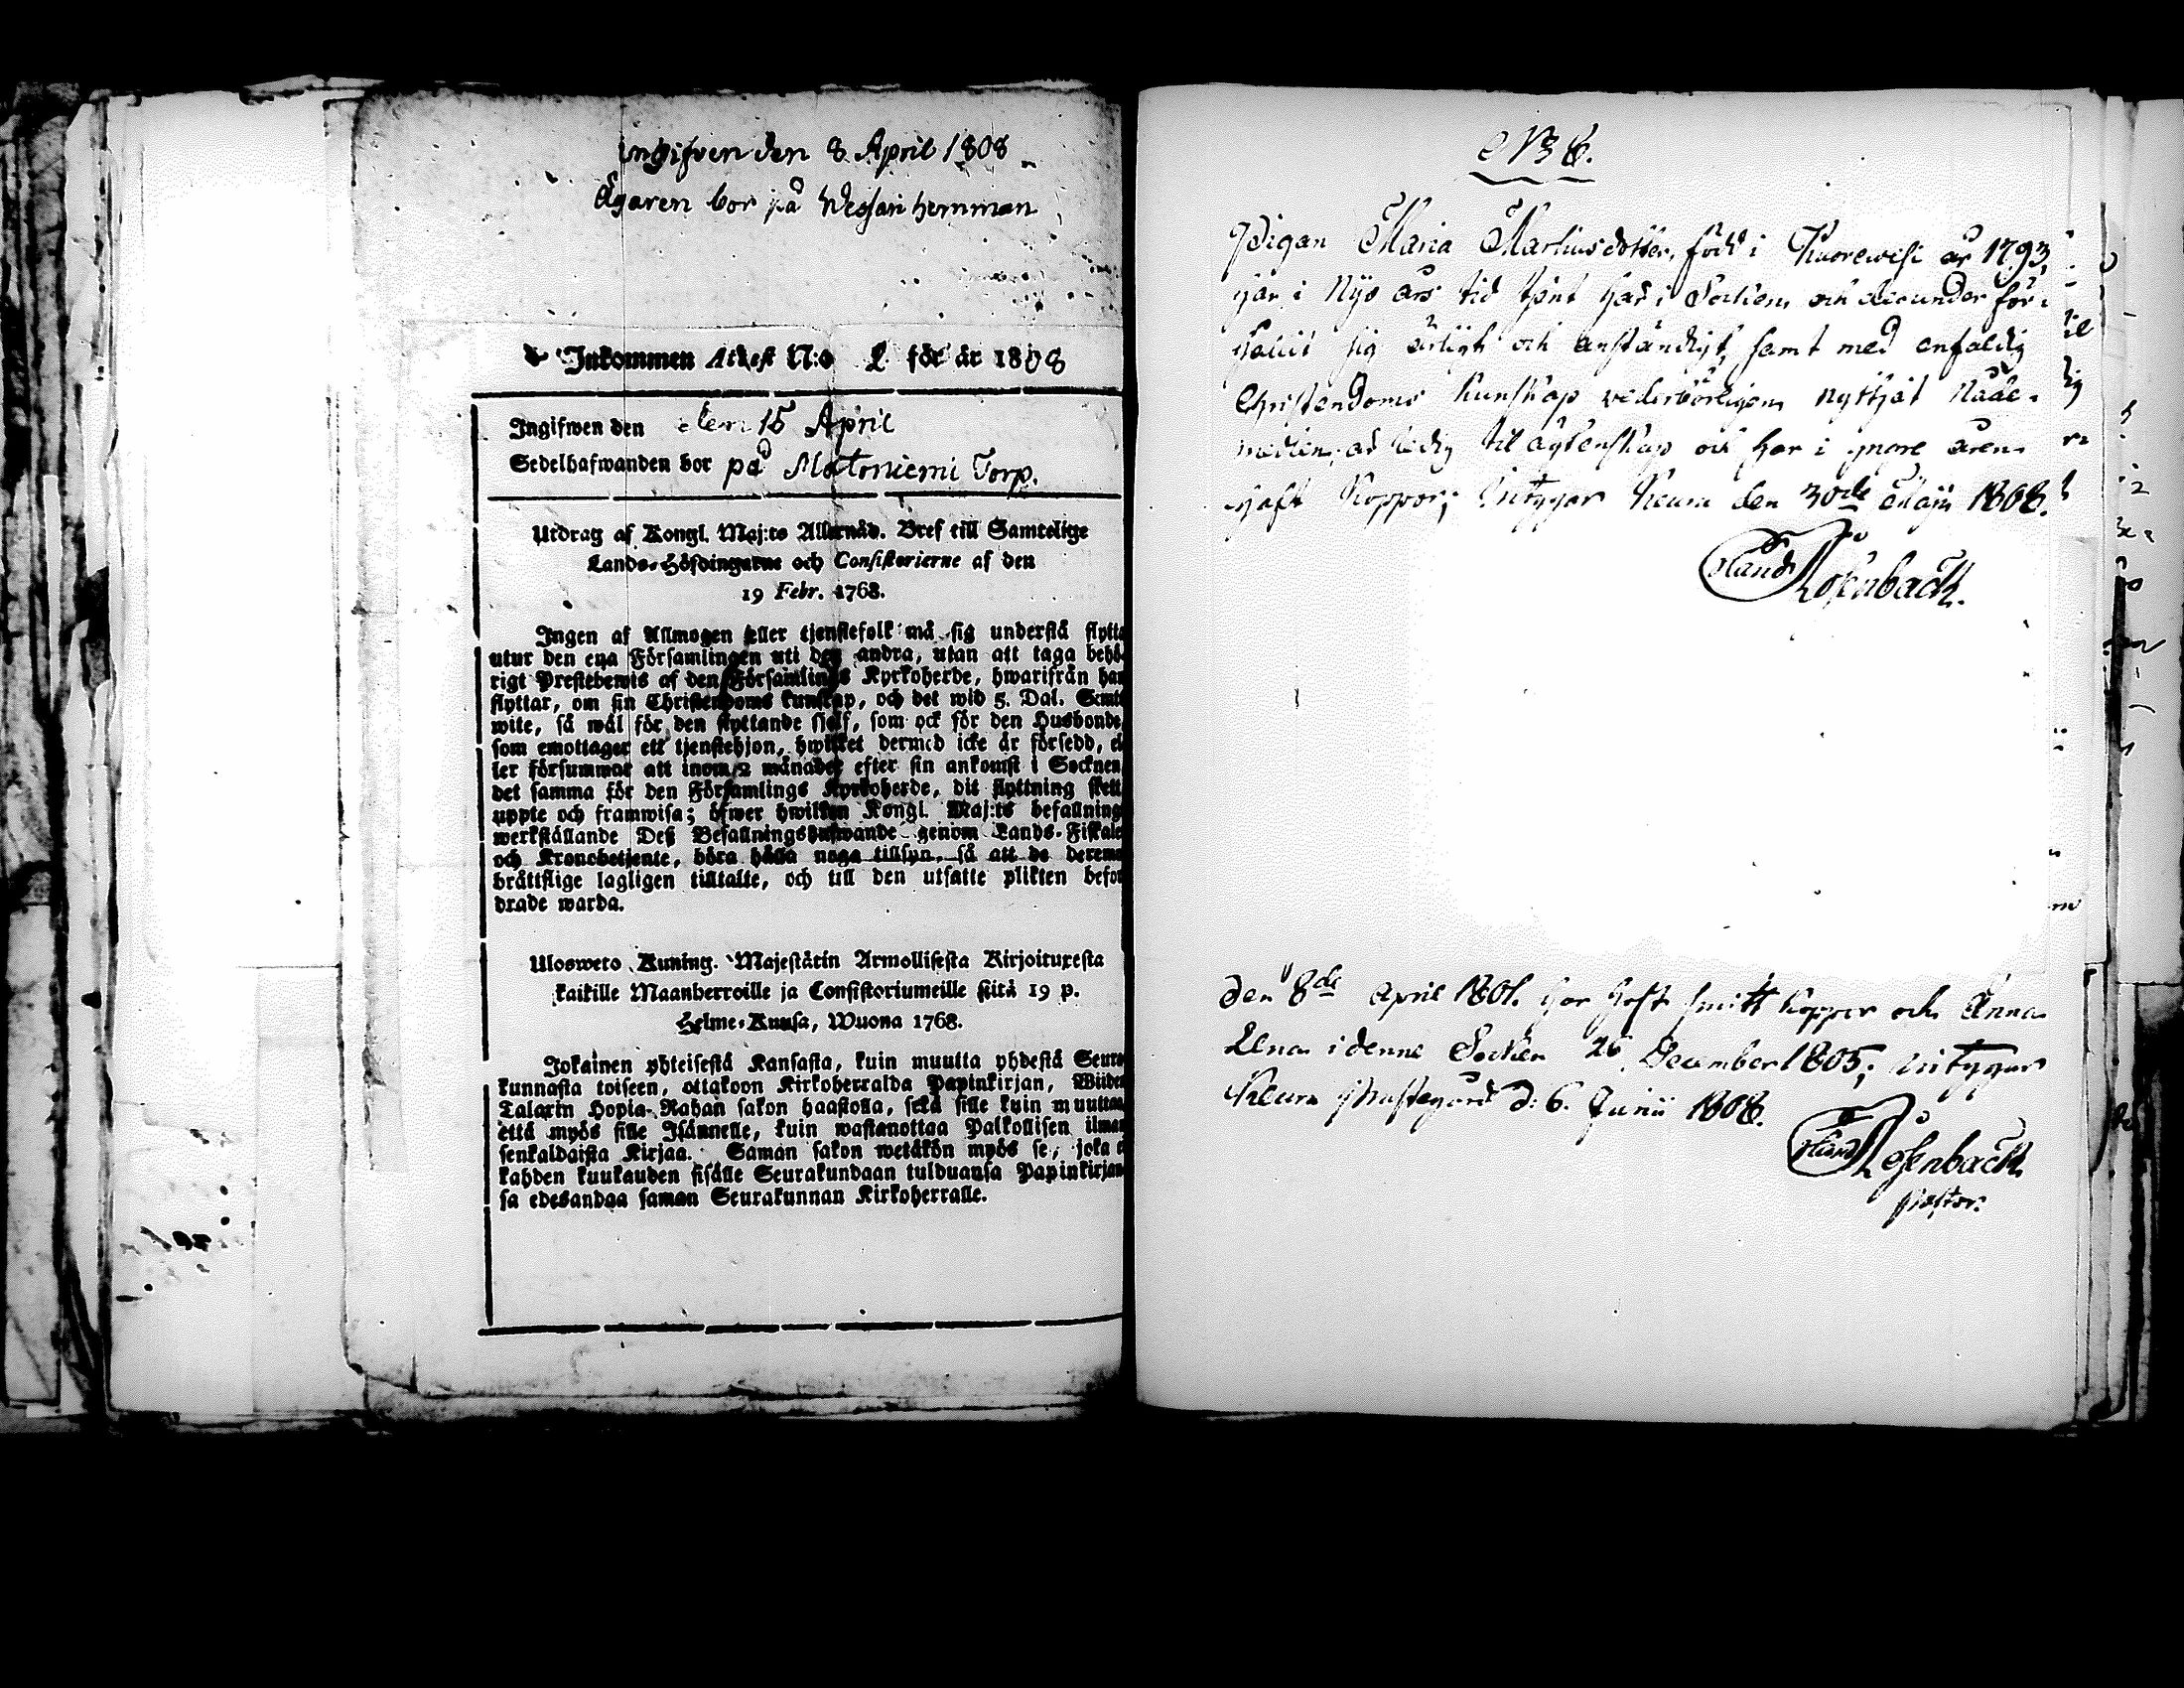 ingifven den 8 April 1808
Ägaren bor på Wessari hemman
Inkommen Attest N:o 2 för år 1808
Ingifwen den den 15 April
Sedelhafwanden bor på Matoniemi Torp.
Utdrag af Kongl. Maj:ts Allernåd. Bref till Samtelige
Lands-Höfdingarne och Consistorierne af den
19 Febr. 1768.
Ingen af Allmogen eller tjenstefolk må sig understå flytta
utur den ena Församlingen uti den andra, utan att taga behö-
rigt Prestebewis af den Församlings Kyrkoherde, hwarifrån han
flyttar, om sin Christendoms kunskap, och det wid 5. Dal. Smts
wite, så wäl för den flyttande sjelf, som ock för den Husbonde,
som emottager ett tjenstehjon, hwilket dermed icke är försedd, el-
ler försummar att inom 2 månader efter sin ankomst i Socknen,
det samma för den Församlings Kyrkoherde, dit flyttning skett
uppte och framwisa; öfwer hwilken Kongl. Maj:ts befallnings
werkställande Deß Befallningshafwande genom Lands-Fiskaler
och Kronobetjente, böra hålla noga tillsyn, så att de deremo
bråttslige lagligen tilltalte, och till den utsatte plikten befor-
drade warda.
Ulosweto Kuning. Majestätin Armollisesta Kirjoituxesta
kaikille Maanherroille ja Consistoriumeille siitä 19 p.
Helme-Kuusa, Wuona 1768.
Jokainen yhteisestä Kansasta, kuin muutta yhdestä Seura-
kunnasta toiseen, ottakoon Kirkoherralda Papinkirjan, Wiiden
Talarin Hopia-Rahan sakon haastolla, sekä sille kuin muuttaa,
että myös sille Isännelle, kuin wastanottaa Palkollisen ilman
senkaldaista Kirjaa. Saman sakon wetäkön myös se, joka ei
kahden kuukauden sisälle Seurakundaan tulduansa Papinkirjan-
sa edesandaa saman Seurakunnan Kirkoherralle.
Pigan Maria Martinsdotter, född i Kuorewesi år 1793
har i Nijo års tid tjent här i Socknen och derunder för-
hållit sig ärligt och anständigt, samt med enfaldig
Christendoms Kunskap vederbörligen nyttjat Nåde-
medlen, är ledig til ägtenskap och har i yngre åren
haft Koppor; intygar Keuru den 30de Maji 1808.
Rosenback.
den 8de April 1801. har haft smitt koppor och Anna
Lena i denne Socken 26 December 1805; intygar
Keuru Prästegård d: 6. Junii 1808.
Rosenback
Pastor.